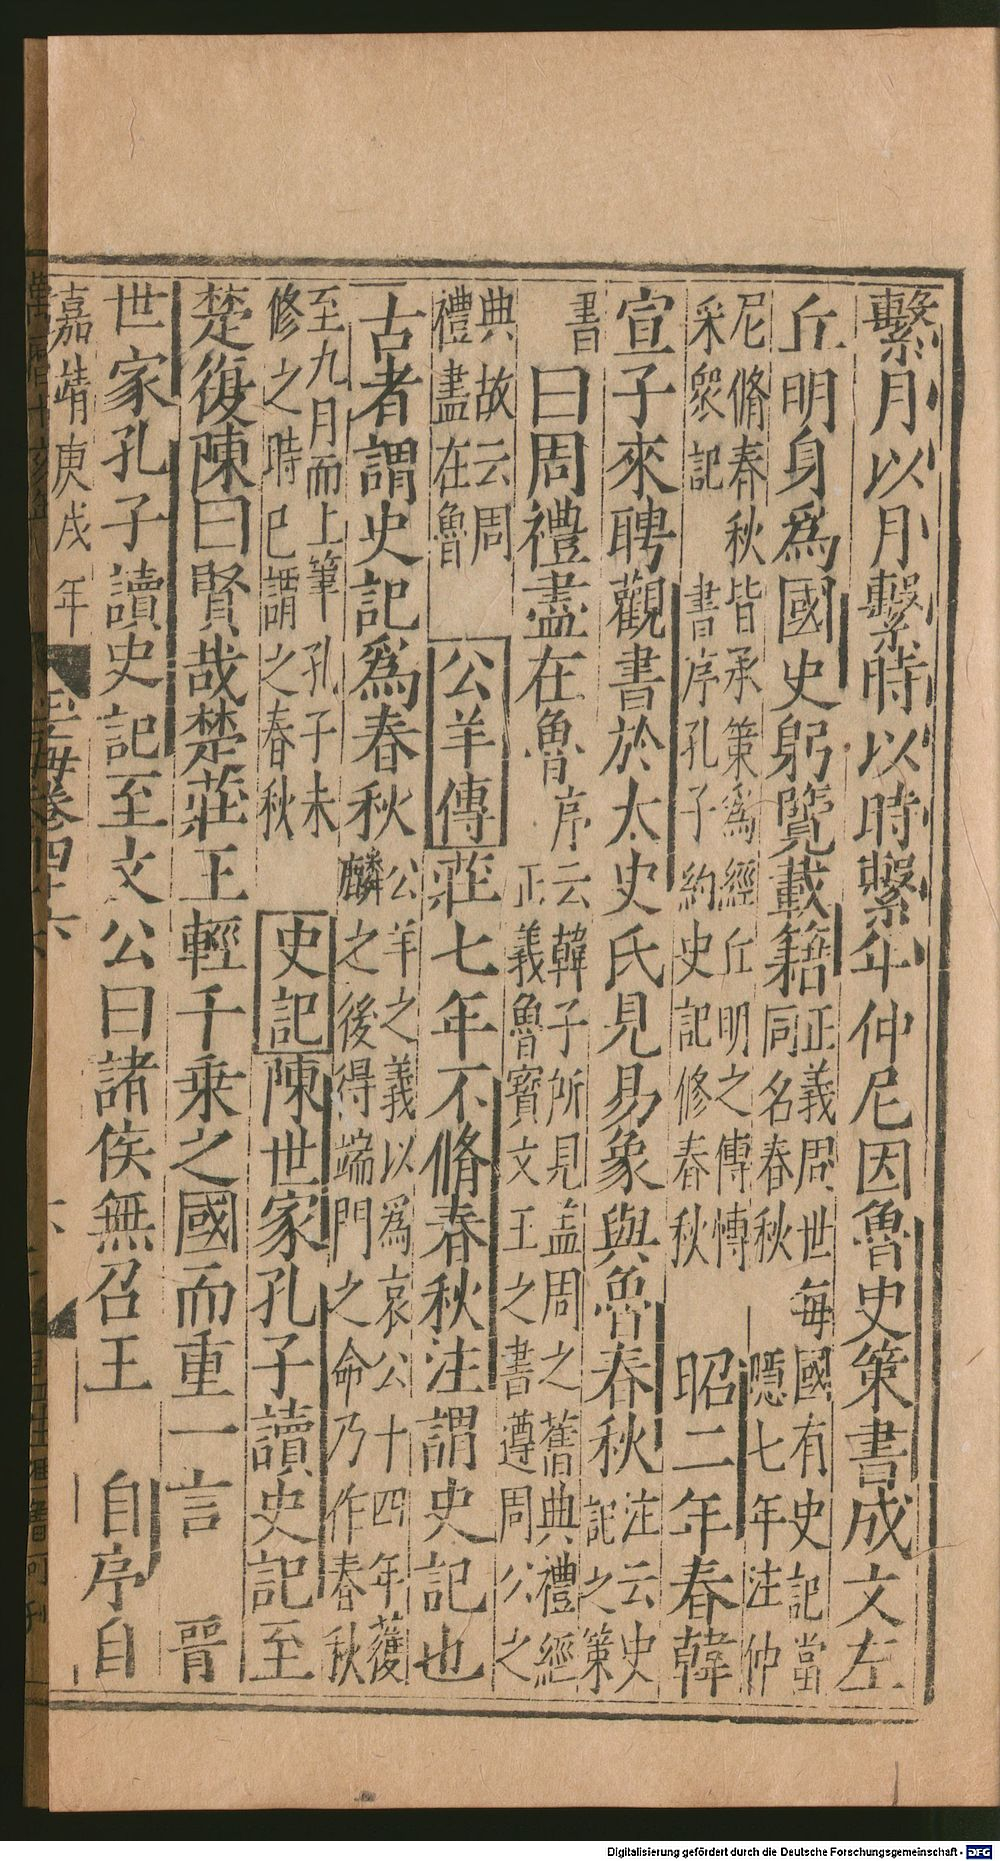 繫月以月繫時以時繫年仲尼因魯史策書成文左
丘明身爲國史躬覽載籍正義問世每國有史記當
同名春秋隱七年注仲
尼脩春秋皆承策爲經丘明之傳愽
采衆記書序孔子約史記修春秋昭二年春韓
宣子來聘觀書於太史氏見易象與魯春秋注云史
記之策
書曰周禮盡在魯序云韓子所見盖周之舊典禮經
正義魯寳文王之書遵周公之
典故云周
禮盡在魯公羊傳莊七年不脩春秋注謂史記也
古者謂史記爲春秋公羊之義以爲哀公十四年獲
麟之後得端門之命乃作春秋
至九月而上筆孔子未
修之時巳謂之春秋史記陳世家孔子讀史記至
楚復陳曰賢哉楚莊王輕千乗之國而重一言晉
世家孔子讀史記至文公曰諸侯無召王自序自
嘉靖庚戌年
玉海卷四十六